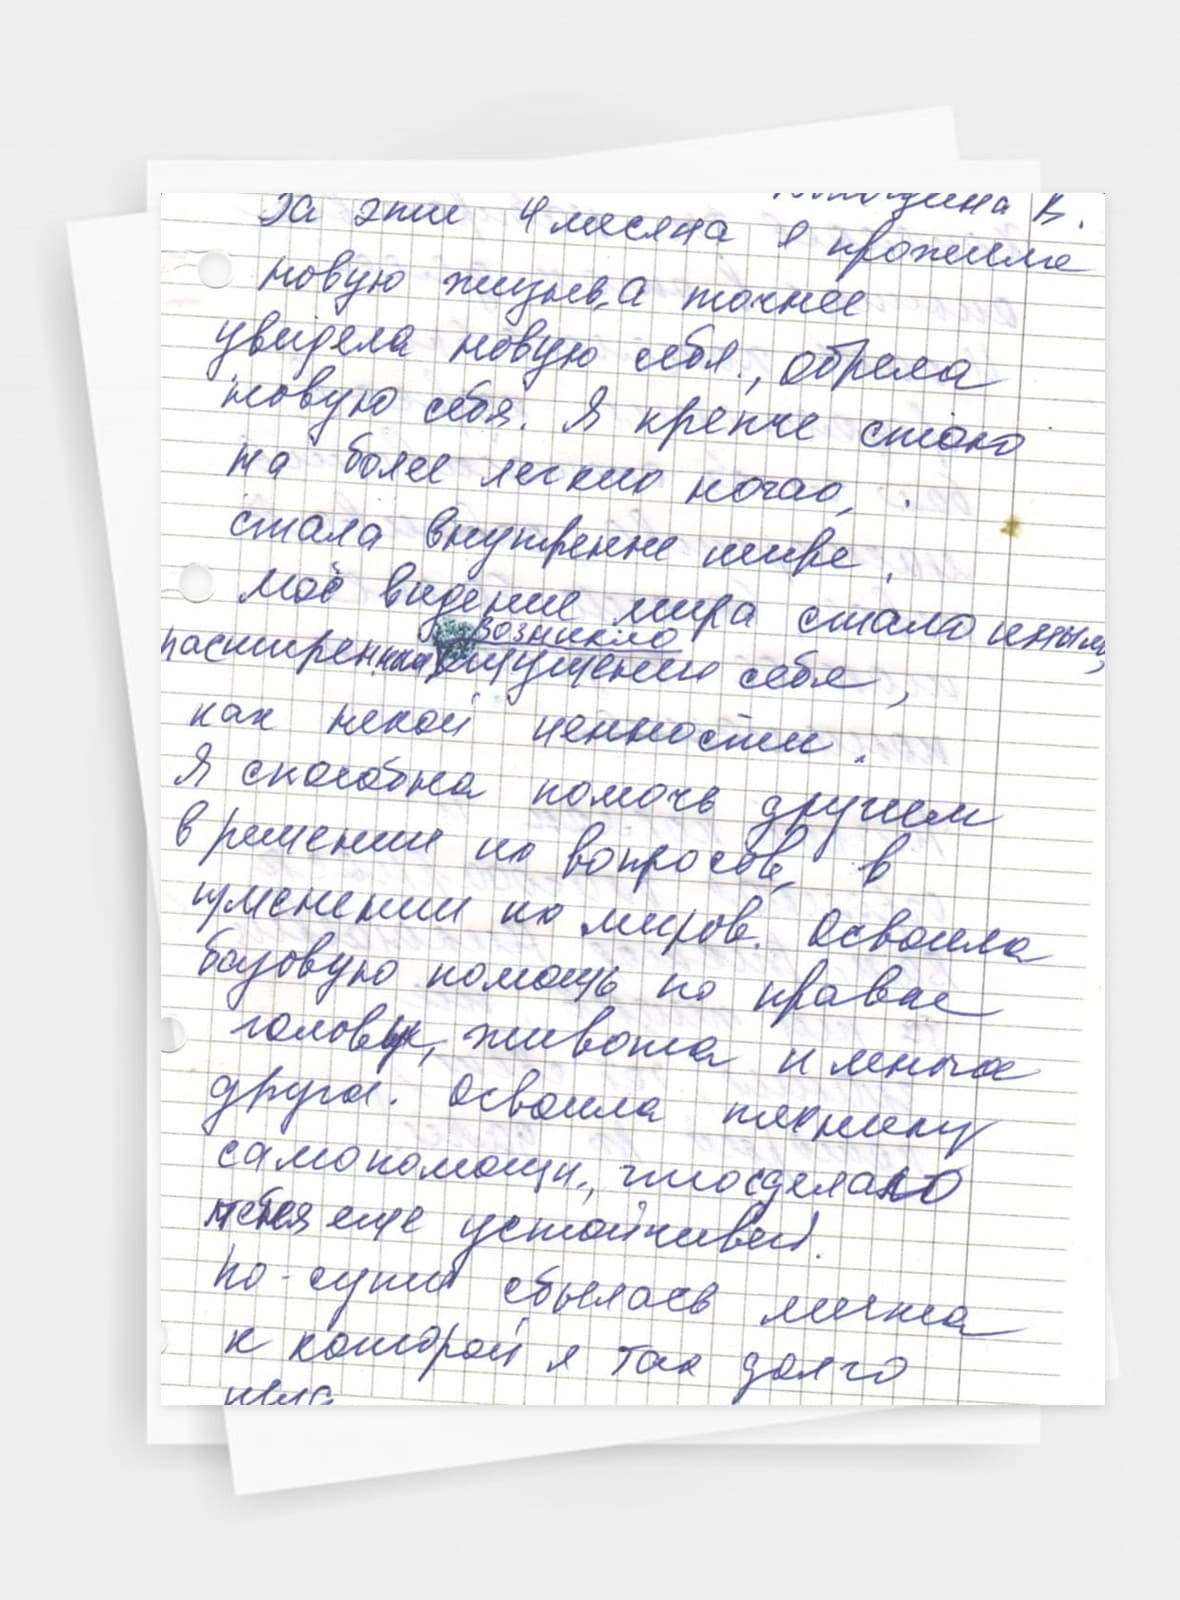 В.
За эти 4 месяца я прожила
новую жизнь, а точнее
увидела новую себя., обрела
новую себя. Я крепче стою
на более легких ногах,
стала внутренне шире.
Моё видение мира стало иным,
возникло
расширенным, ощущению себя,
как некой ценности.
Я способна помочь другим
в решении их вопросов, в
изменении их миров. Освоила
базовую помощь по правке
головы, живота и многое
другое. Освоила технику
самопомощи, что сделало
меня еще устойчивей.
По-сути сбылась мечта
к которой я так долго
шла